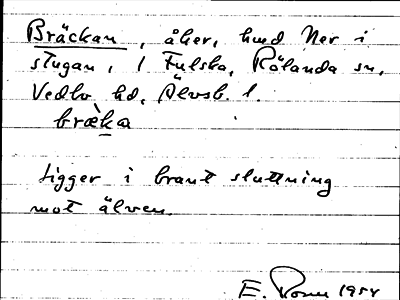 Bräckan, åker, hmd Ner i
stugan, 1 Fulska, Rölanda sn,
Vedbo hd, Älvsb. l.
bræ̀ka
Ligger i brant sluttning
mot älven.
E. 1954